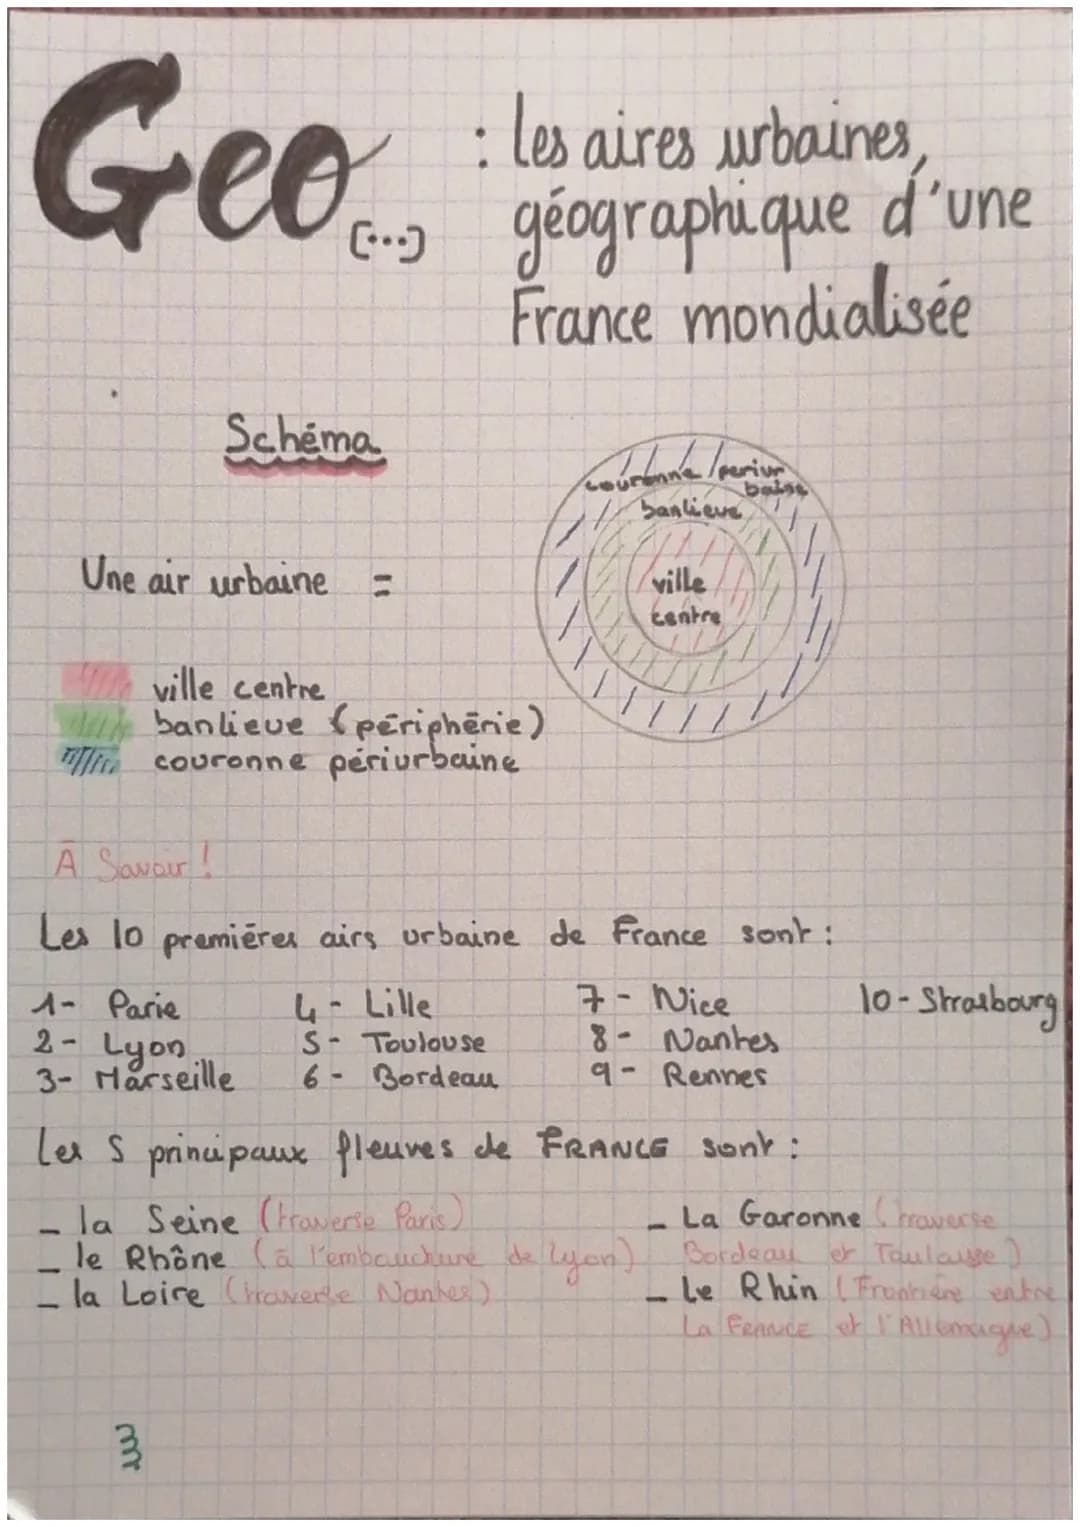 Geo [...] : les aires urbaines,
géographique d'une
France mondialisée
Schéma
couronne periur
baine
banlieue
ville
centre
Une air urbaine =
ville centre
banlieue (périphérie)
couronne périurbaine
À Savoir !
Les 10 premières airs urbaine de France sont :
1- Parie 4- Lille 7- Nice 10- Strasbourg
2- Lyon 5- Toulouse 8- Nantes
3- Marseille 6- Bordeau 9- Rennes
Les 5 principaux fleuves de FRANCE sont :
- la Seine (traverse Paris) - La Garonne (traverse
- le Rhône (à l'embauchure de Lyon) Bordeau et Taulause)
- la Loire (traverse Nantes) - Le Rhin (Frontière entre
La FRANCE et l'Allemagne)